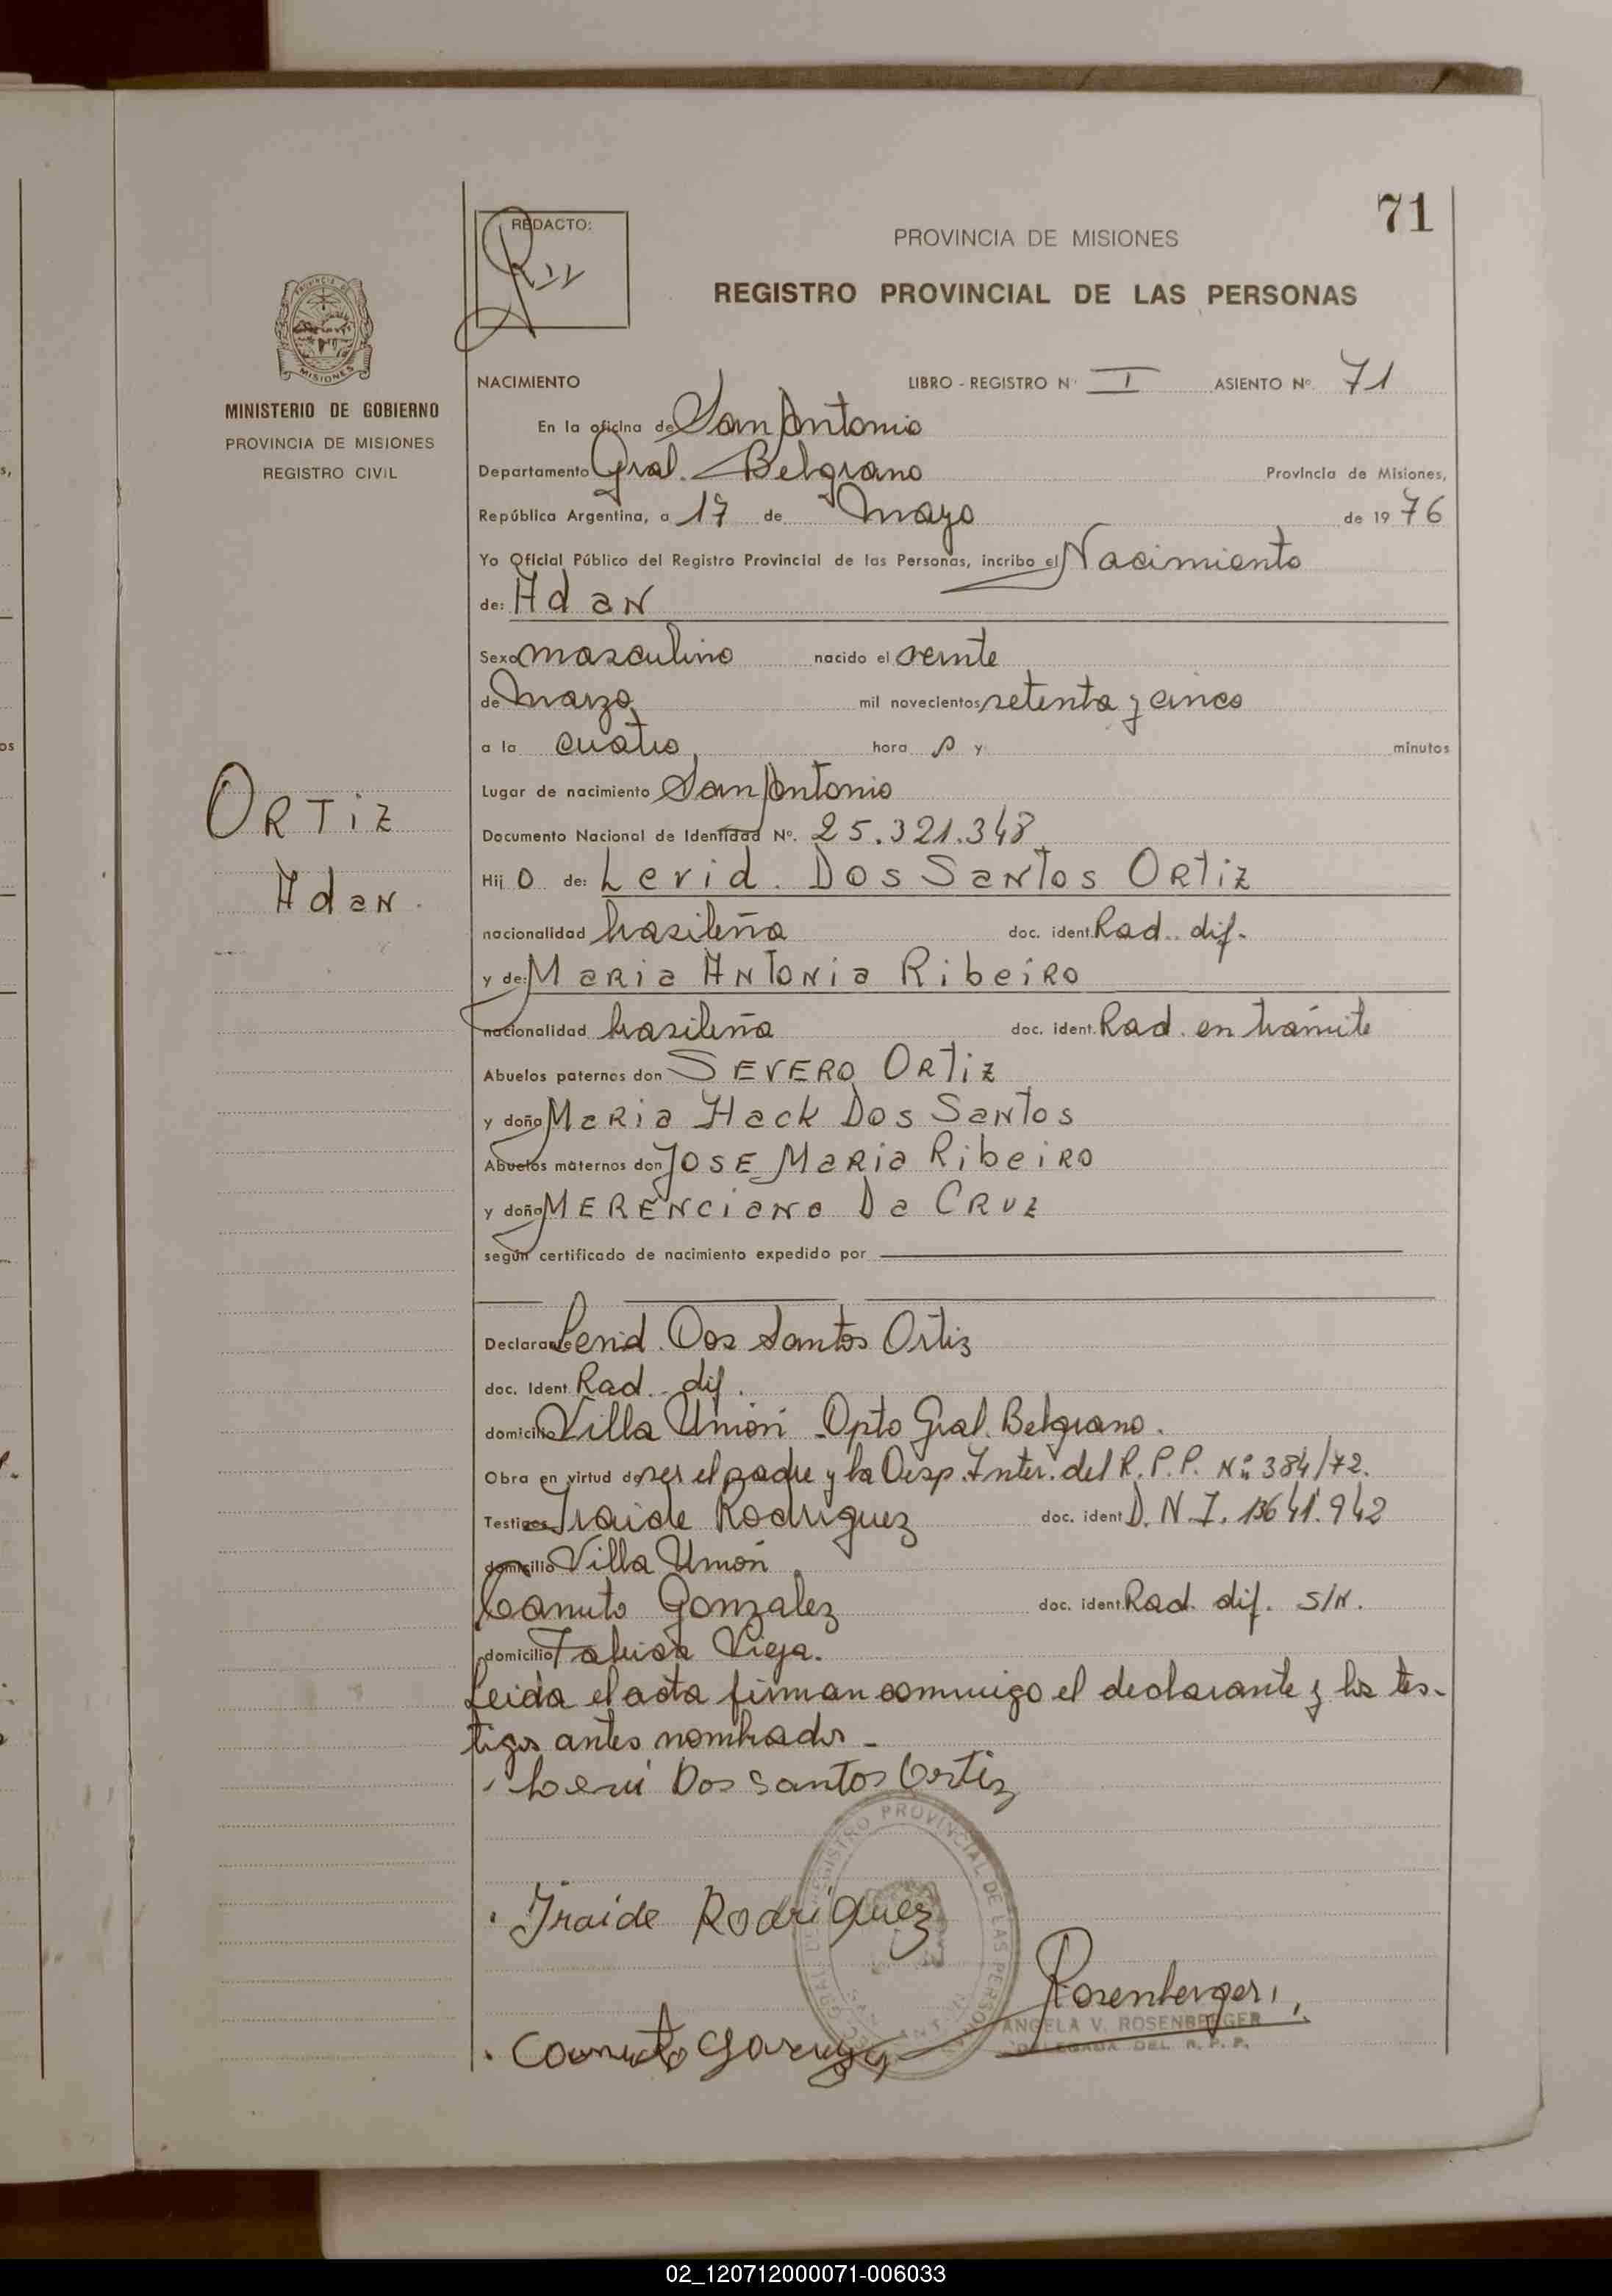 71
REDACTO:
PROVINCIA DE MISIONES
REGISTRO PROVINCIAL DE LAS PERSONAS
MISIONES
MINISTERIO DE GOBIERNO
PROVINCIA DE MISIONES
REGISTRO CIVIL
NACIMIENTO LIBRO - REGISTRO N° I ASIENTO N° 71
En la oficina de San Antonio
Departamento Gral. Belgrano Provincia de Misiones,
República Argentina, a 17 de Mayo de 1976
Yo Oficial Público del Registro Provincial de las Personas, incribo el Nacimiento
de: Adan
Sexo masculino nacido el veinte
de Marzo mil novecientos setenta y cinco
a la cuatro hora s y minutos
Lugar de nacimiento San Antonio
ORTiZ
Adan.
Documento Nacional de Identidad N°. 25.321.348
Hij o de: Lerid. Dos Santos Ortiz
nacionalidad brasileña doc. ident. Rad. dif.
y de: Maria Antonia Ribeiro
nacionalidad brasileña doc. ident. Rad. en trámite
Abuelos paternos don SEVERO ORTiZ
y doña Maria Hack Dos Santos
Abuelos maternos don JOSE Maria Ribeiro
y doña MERENciana Da CRUZ
según certificado de nacimiento expedido por
Declarante Lerid. Dos Santos Ortiz
doc. Ident. Rad. dif.
domicilio Villa Unión Dpto Gral. Belgrano.
Obra en virtud de ser el padre y la Disp. Inter. del R.P.P. N° 384/72.
Testigos Iraide Rodriguez doc. ident D.N.I. 13641.942
domicilio Villa Unión
Canuto Gonzalez doc. ident. Rad. dif. S/N.
domicilio Vieja.
Leida el acta firman conmigo el declarante y los tes-
tigos antes nombrados -
Leri Dos Santos Ortiz
REGISTRO PROVINCIAL DE LAS PERSONAS
Iraide Rodriguez
Rosenberger
ANGELA V. ROSENBERGER
DELEGADA DEL R.P.P.
Canuto
02_120712000071-006033